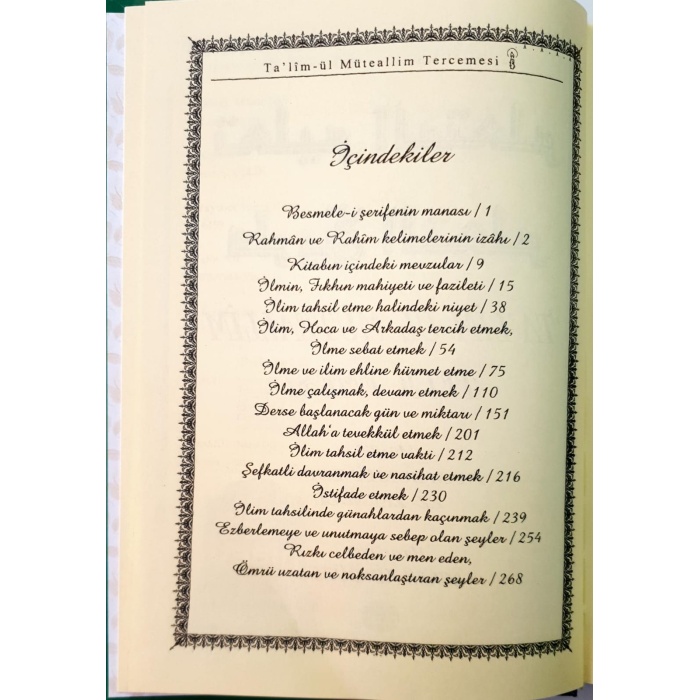 Ta'lîm-ül Müteallim Tercemesi
İçindekiler
Besmele-i şerifenin manası / 1
Rahmân ve Rahîm kelimelerinin izâhı / 2
Kitabın içindeki mevzular / 9
İlmin, Fıkhın mahiyeti ve fazileti / 15
İlim tahsil etme halindeki niyet / 38
İlim, Hoca ve Arkadaş tercih etmek,
İlme sebat etmek / 54
İlme ve ilim ehline hürmet etme / 75
İlme çalışmak, devam etmek / 110
Derse başlanacak gün ve miktarı / 151
Allah'a tevekkül etmek / 201
İlim tahsil etme vakti / 212
Şefkatli davranmak ve nasihat etmek / 216
İstifade etmek / 230
İlim tahsilinde günahlardan kaçınmak / 239
Ezberlemeye ve unutmaya sebep olan şeyler / 254
Rızkı celbeden ve men eden,
Ömrü uzatan ve noksanlaştıran şeyler / 268